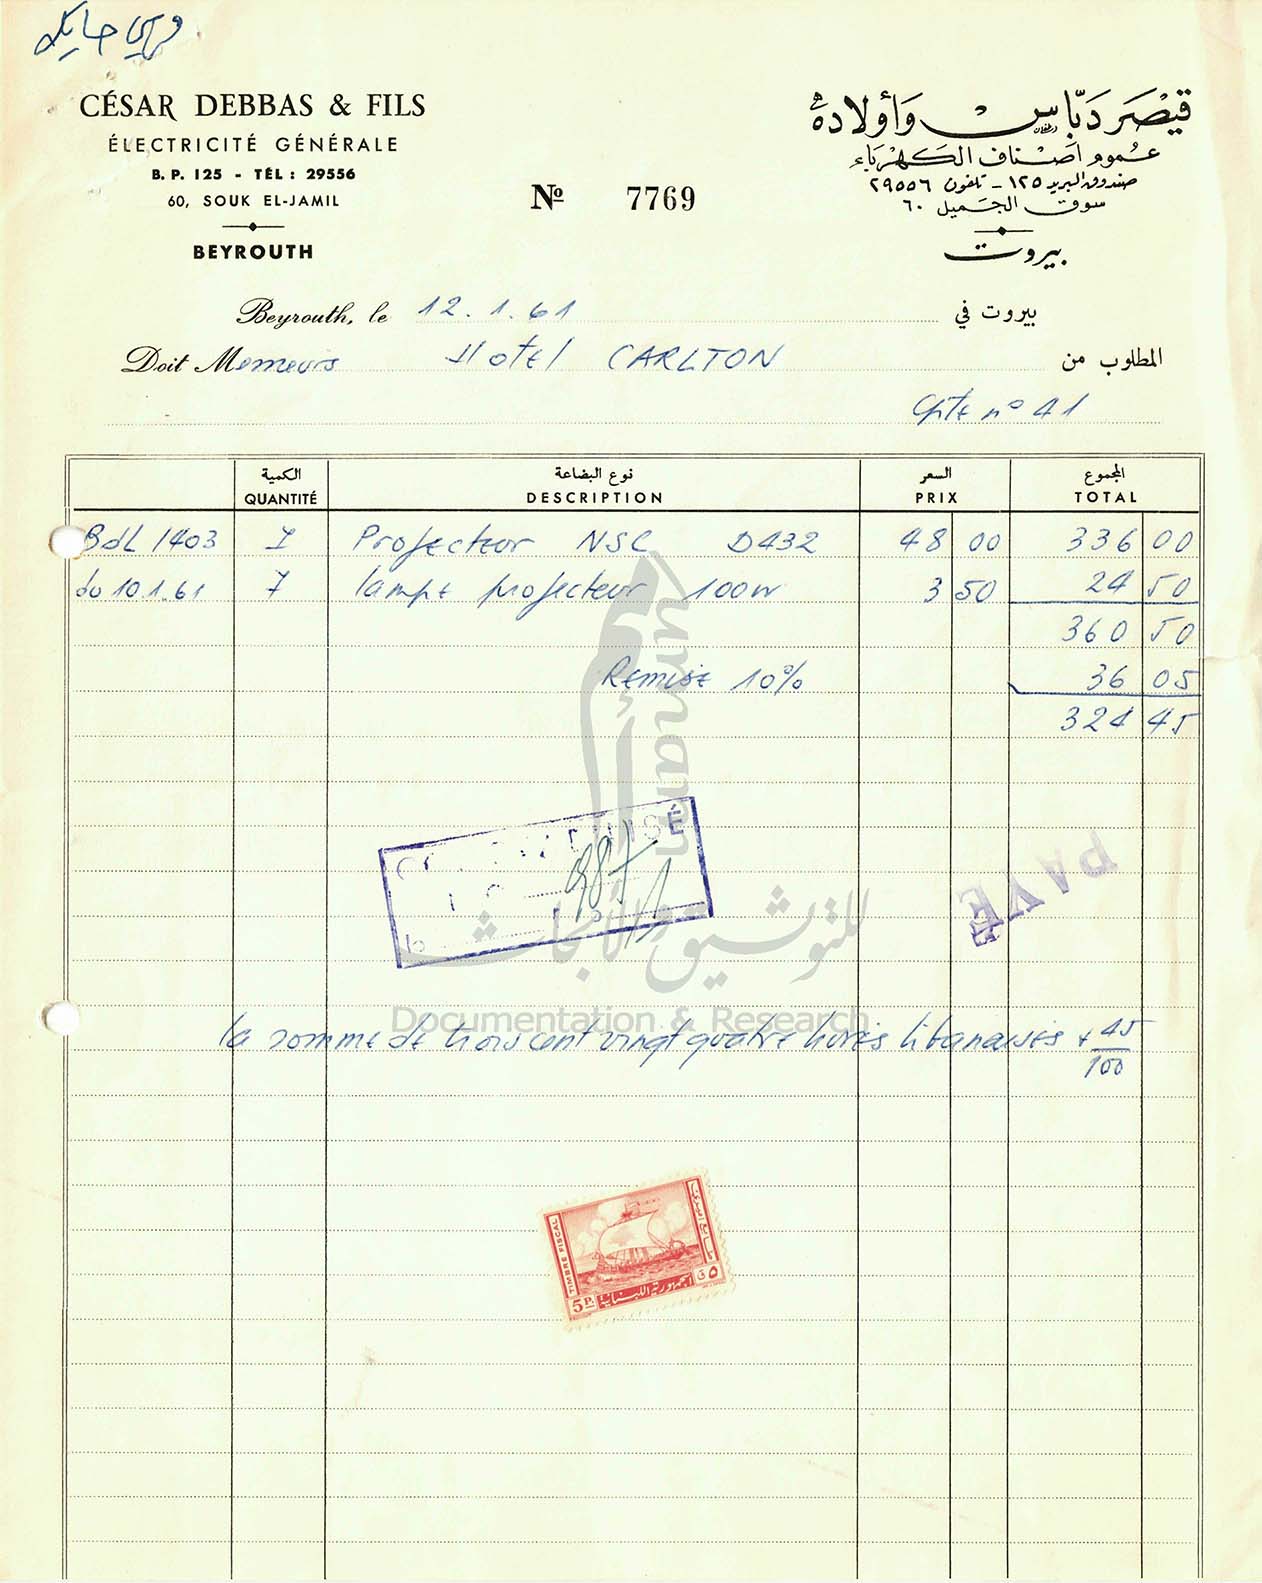 CÉSAR DEBBAS & FILS
ÉLECTRICITÉ GÉNÉRALE
B. P. 125 - TÉL : 29556
60, SOUK EL-JAMIL
BEYROUTH
قيصر دبّاس وأولاده
عموم أصناف الكهرباء
صندوق البريد ١٢٥ - تلفون ٢٩٥٥٦
سوق الجميل ٦٠
بيروت
Nº 7769
Beyrouth, le 12.1.61 بيروت في
Doit Messieurs Hotel CARLTON المطلوب من
Cpte nº 41
الكمية نوع البضاعة السعر المجموع
QUANTITÉ DESCRIPTION PRIX TOTAL
BdL 1403 7 Projecteur NSC D432 48 00 336 00
du 10.1.61 7 lampe projecteur 100w 3 50 24 50
360 50
Remise 10% 36 05
324 45
PAYÉ
la somme de trois cent vingt quatre livres libanaises + 45/100
TIMBRE FISCAL
طابع اميري
5 P. الجمهورية اللبنانية ٥ ق
أمم
umam
للتوثيق والأبحاث
Documentation & Research